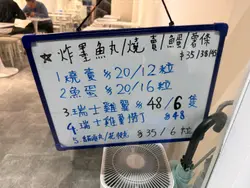 ☆炸墨魚丸/燒賣/魚蛋/薯條
$35/38
1.燒賣 $20/12粒
2.魚蛋 $20/16粒
3.瑞士雞翼 $48/6隻
4.瑞士雞翼撈丁 $48
$35/6粒